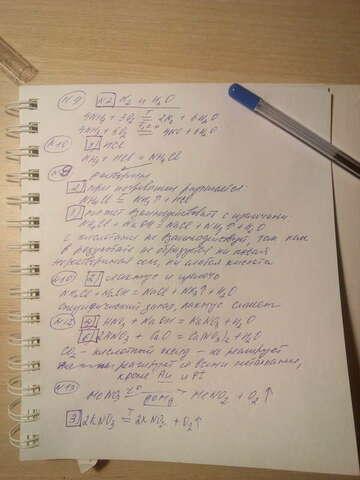 N9 N2 N2 и H2O
4NH3 + 3O2 = 2N2 + 6H2O
4NH3 + 5O2 = 4NO + 6H2O
N10 3) HCl
NH3 + HCl = NH4Cl
N9
2) при нагревании разлагается
NH4Cl = NH3↑ + HCl
1) может взаимодействовать с щелочами
NH4Cl + NaOH = NaCl + NH3↑ + H2O
с кислотами не взаимодействует, так как
в результате не образуется ни новая
соль, ни слабая кислота
N10 2) лакмус и щелочь
NH4Cl + NaOH = NaCl + NH3↑ + H2O
запах, лакмус синеет
N12 HNO3 + NaOH = NaNO3 + H2O
2HNO3 + CaO = Ca(NO3)2 + H2O
CO2 - кислотный оксид - не реагирует
реагирует со всеми металлами,
кроме Au и Pt
MeNO3 MeNO2 + O2↑
3) 2KNO3 = 2KNO2 + O2↑